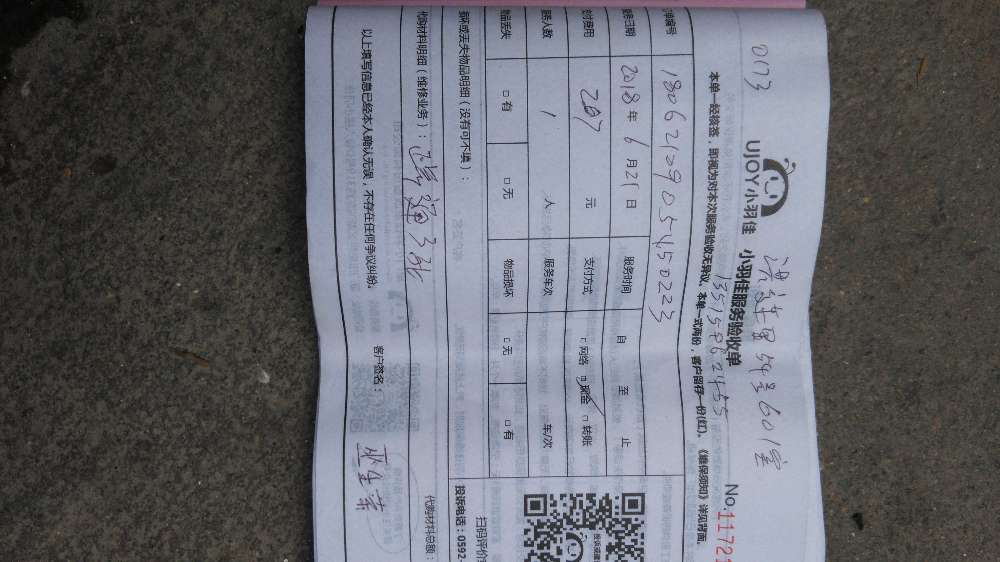 0173
UJOY小羽佳 小羽佳服务验收单 No.11721
54号601室
13515962455
本单一经核签，即视为对本次服务验收无异议。本单一式两份，客户留存一份(红)。《维保须知》详见背面。
订单编号 1806210905450223
服务日期 2018年6月21日 服务时间 自 至 止
支付费用 207 元 支付方式 □网络 □现金 □转账
服务人数 1 人 服务车次 车/次
物品丢失 □有 □无 物品损坏 □无 □有
损坏或丢失物品明细（没有可不填）：
扫码评价
投诉电话：0592-
代购材料明细（维修业务）：疏通 代购材料总额：
以上填写信息已经本人确认无误，不存在任何争议纠纷。 客户签名：